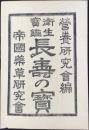 營養研究會編
衛生寳鑑
長壽の寶
帝國藥草研究會